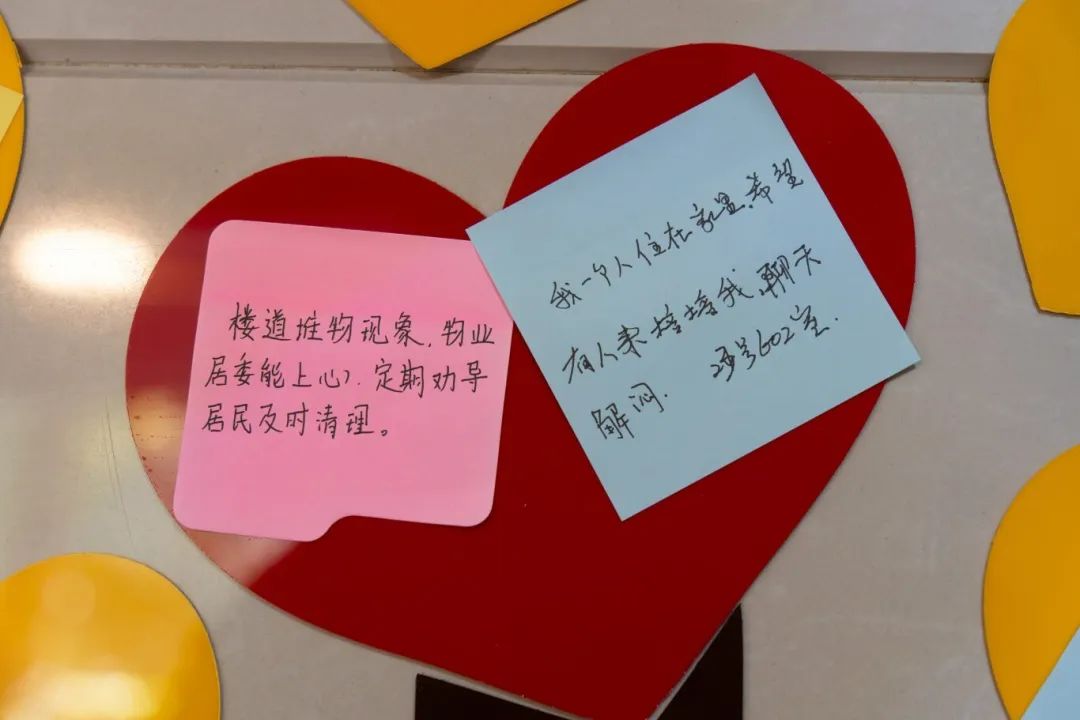 楼道堆物现象,物业
居委能上心,定期劝导
居民及时清理。
我一个人住在家里,希望
有人来陪陪我,聊天
解闷. 2号602室.